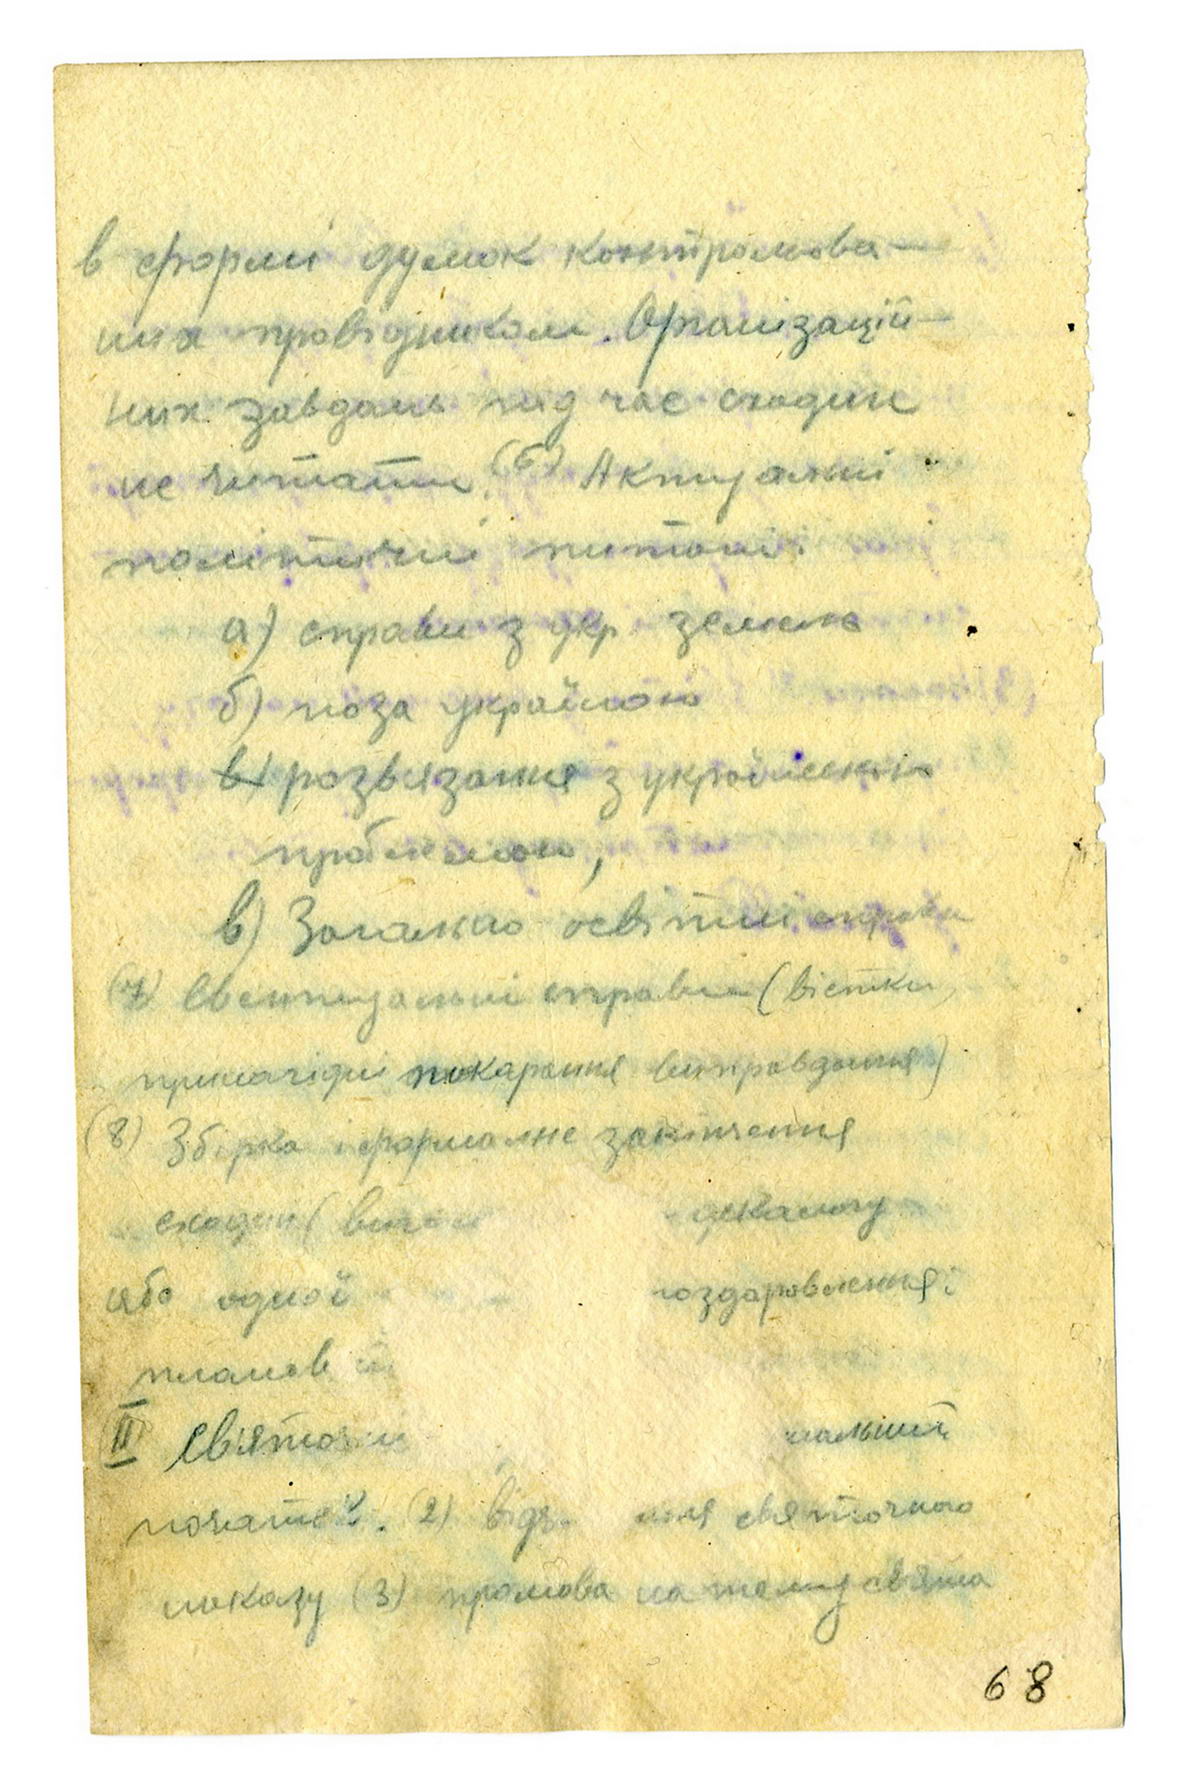 в формі думок контрольова-
них провідником. Організацій-
них завдань під час сходин
не читати. (6) Актуальні
політичні питання:
а) справи з укр. земель
б) поза україною
в) розвязання з українською
проблемою,
в) Загально освітні справи
(7) Евентуальні справи (вістки,
принагідні покарання виправдання)
(8) Збірка і формалне закінчення
сходин ( декалогу
або одної поздоровлення;
планов
II Святочні
початок. (2) святочного
наказу (3) промова на тему свята
68